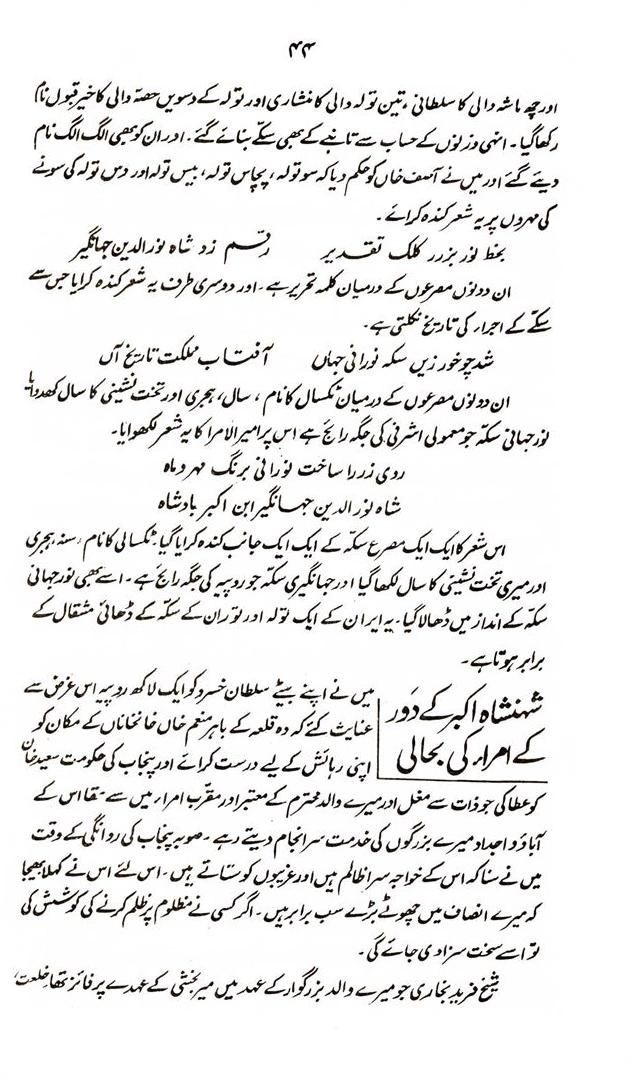 ۴۴
اور چھ ماشہ والی کا سلطانی، تین تولہ والی کا نثاری اور تولہ کے دسویں حصّہ والی کا خیر قبول نام
رکھا گیا۔ انہی وزنوں کے حساب سے تانبے کے بھی سکّے بنائے گئے۔ اور ان کو بھی الگ الگ نام
دیئے گئے اور میں نے آصف خاں کو حکم دیا کہ سو تولہ، پچاس تولہ، بیس تولہ اور دس تولہ کی سونے
کی مہروں پر یہ شعر کندہ کرائے۔
بخط نور بزرر کلک تقدیر رقم زد شاہ نور الدین جہانگیر
ان دونوں مصرعوں کے درمیان کلمہ تحریر ہے۔ اور دوسری طرف یہ شعر کندہ کرایا جس سے
سکّے کے اجراء کی تاریخ نکلتی ہے۔
شد چو خور زیں سکہ نورانی جہاں آفتاب مملکت تاریخ آں
ان دونوں مصرعوں کے درمیان ٹکسال کا نام، سال، ہجری اور تخت نشینی کا سال کھدوایا
نور جہانی سکہ جو معمولی اشرفی کی جگہ رائج ہے اس پر امیر الامرا کا یہ شعر لکھوایا۔
روی زر را ساخت نورانی برنگ مہر و ماہ
شاہ نور الدین جہانگیر ابن اکبر بادشاہ
اس شعر کا ایک ایک مصرع سکّہ کے ایک ایک جانب کندہ کرایا گیا۔ ٹکسالی کا نام، سنہ ہجری
اور میری تخت نشینی کا سال لکھا گیا اور جہانگیری سکّہ جو روپیہ کی جگہ رائج ہے۔ اسے بھی نور جہانی
سکّہ کے انداز میں ڈھالا گیا۔ یہ ایران کے ایک تولہ اور توران کے سکّہ کے ڈھائی مثقال کے
برابر ہوتا ہے۔
شہنشاہ اکبر کے دَور
کے امراء کی بحالی
میں نے اپنے بیٹے سلطان خسرو کو ایک لاکھ روپیہ اس غرض سے
عنایت کئے کہ وہ قلعہ کے باہر منعم خاں خانخاناں کے مکان کو
اپنی رہائش کے لیے درست کرائے اور پنجاب کی حکومت سعید خان
کو عطا کی جو ذات سے مغل اور میرے والد محترم کے معتبر اور مقرب امراء میں سے تھا اس کے
آباؤ و اجداد میرے بزرگوں کی خدمت سرانجام دیتے رہے۔ صوبہ پنجاب کی روانگی کے وقت
میں نے سنا کہ اس کے خواجہ سرا ظالم ہیں اور غریبوں کو ستاتے ہیں۔ اس لئے اس نے کہلا بھیجا
کہ میرے انصاف میں چھوٹے بڑے سب برابر ہیں۔ اگر کسی نے مظلوم پر ظلم کرنے کی کوشش کی
تو اسے سخت سزا دی جائے گی۔
شیخ فرید بخاری جو میرے والد بزرگوار کے عہد میں میر بخشی کے عہدے پر فائز تھا خلعت،